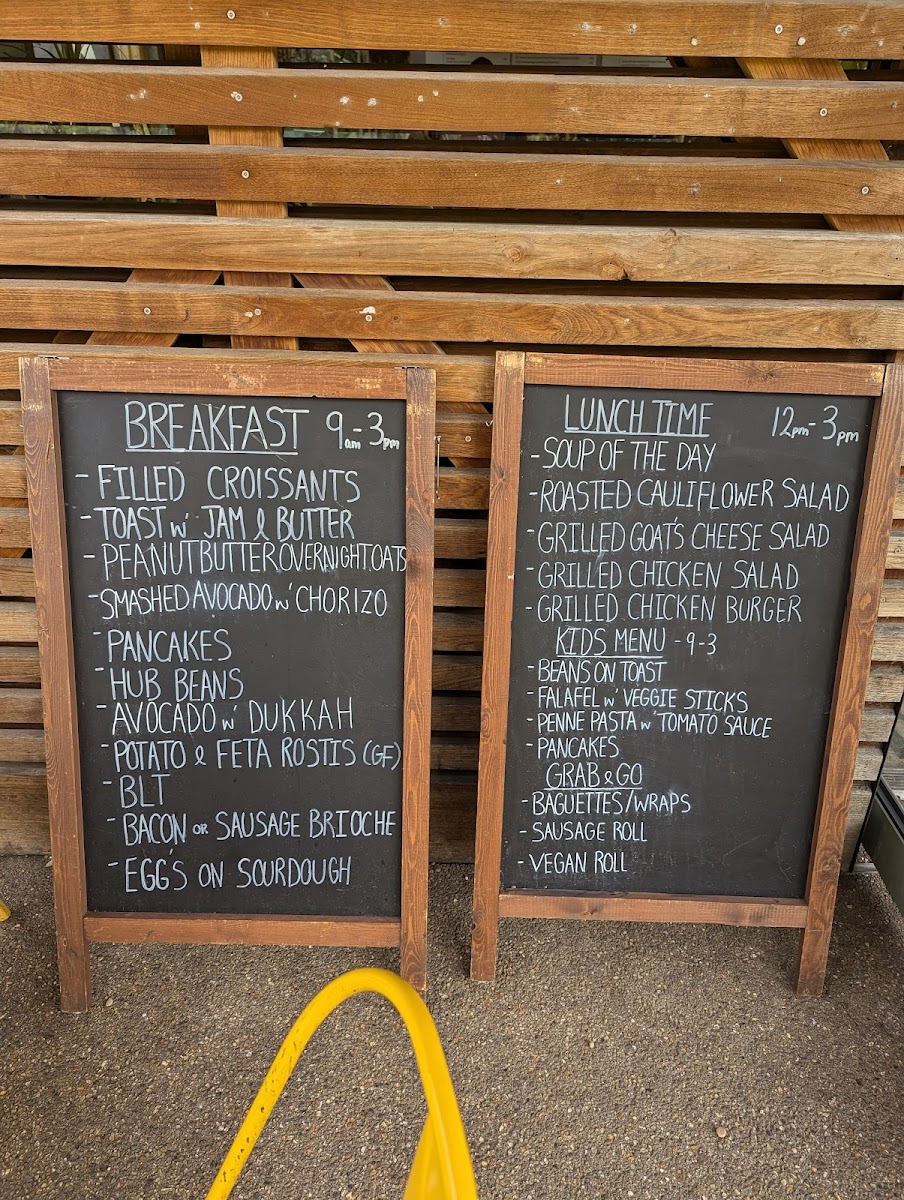 BREAKFAST 9am-3pm
- FILLED CROISSANTS
- TOAST w' JAM & BUTTER
- PEANUT BUTTER OVERNIGHT OATS
- SMASHED AVOCADO w' CHORIZO
- PANCAKES
- HUB BEANS
- AVOCADO w' DUKKAH
- POTATO & FETA ROSTIS (GF)
- BLT
- BACON OR SAUSAGE BRIOCHE
- EGG'S ON SOURDOUGH
LUNCH TIME 12pm-3pm
- SOUP OF THE DAY
- ROASTED CAULIFLOWER SALAD
- GRILLED GOAT'S CHEESE SALAD
- GRILLED CHICKEN SALAD
- GRILLED CHICKEN BURGER
KIDS MENU - 9-3
- BEANS ON TOAST
- FALAFEL w' VEGGIE STICKS
- PENNE PASTA w' TOMATO SAUCE
- PANCAKES
GRAB & GO
- BAGUETTES/WRAPS
- SAUSAGE ROLL
- VEGAN ROLL